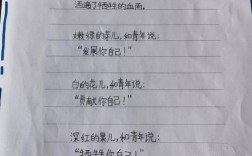 洒遍了牺牲的血雨。
嫩绿的芽儿，和青年说：
“发展你自己！”
白的花儿，和青年说：
“贡献你自己！”
深红的果儿，和青年说：
“牺牲你自己！”